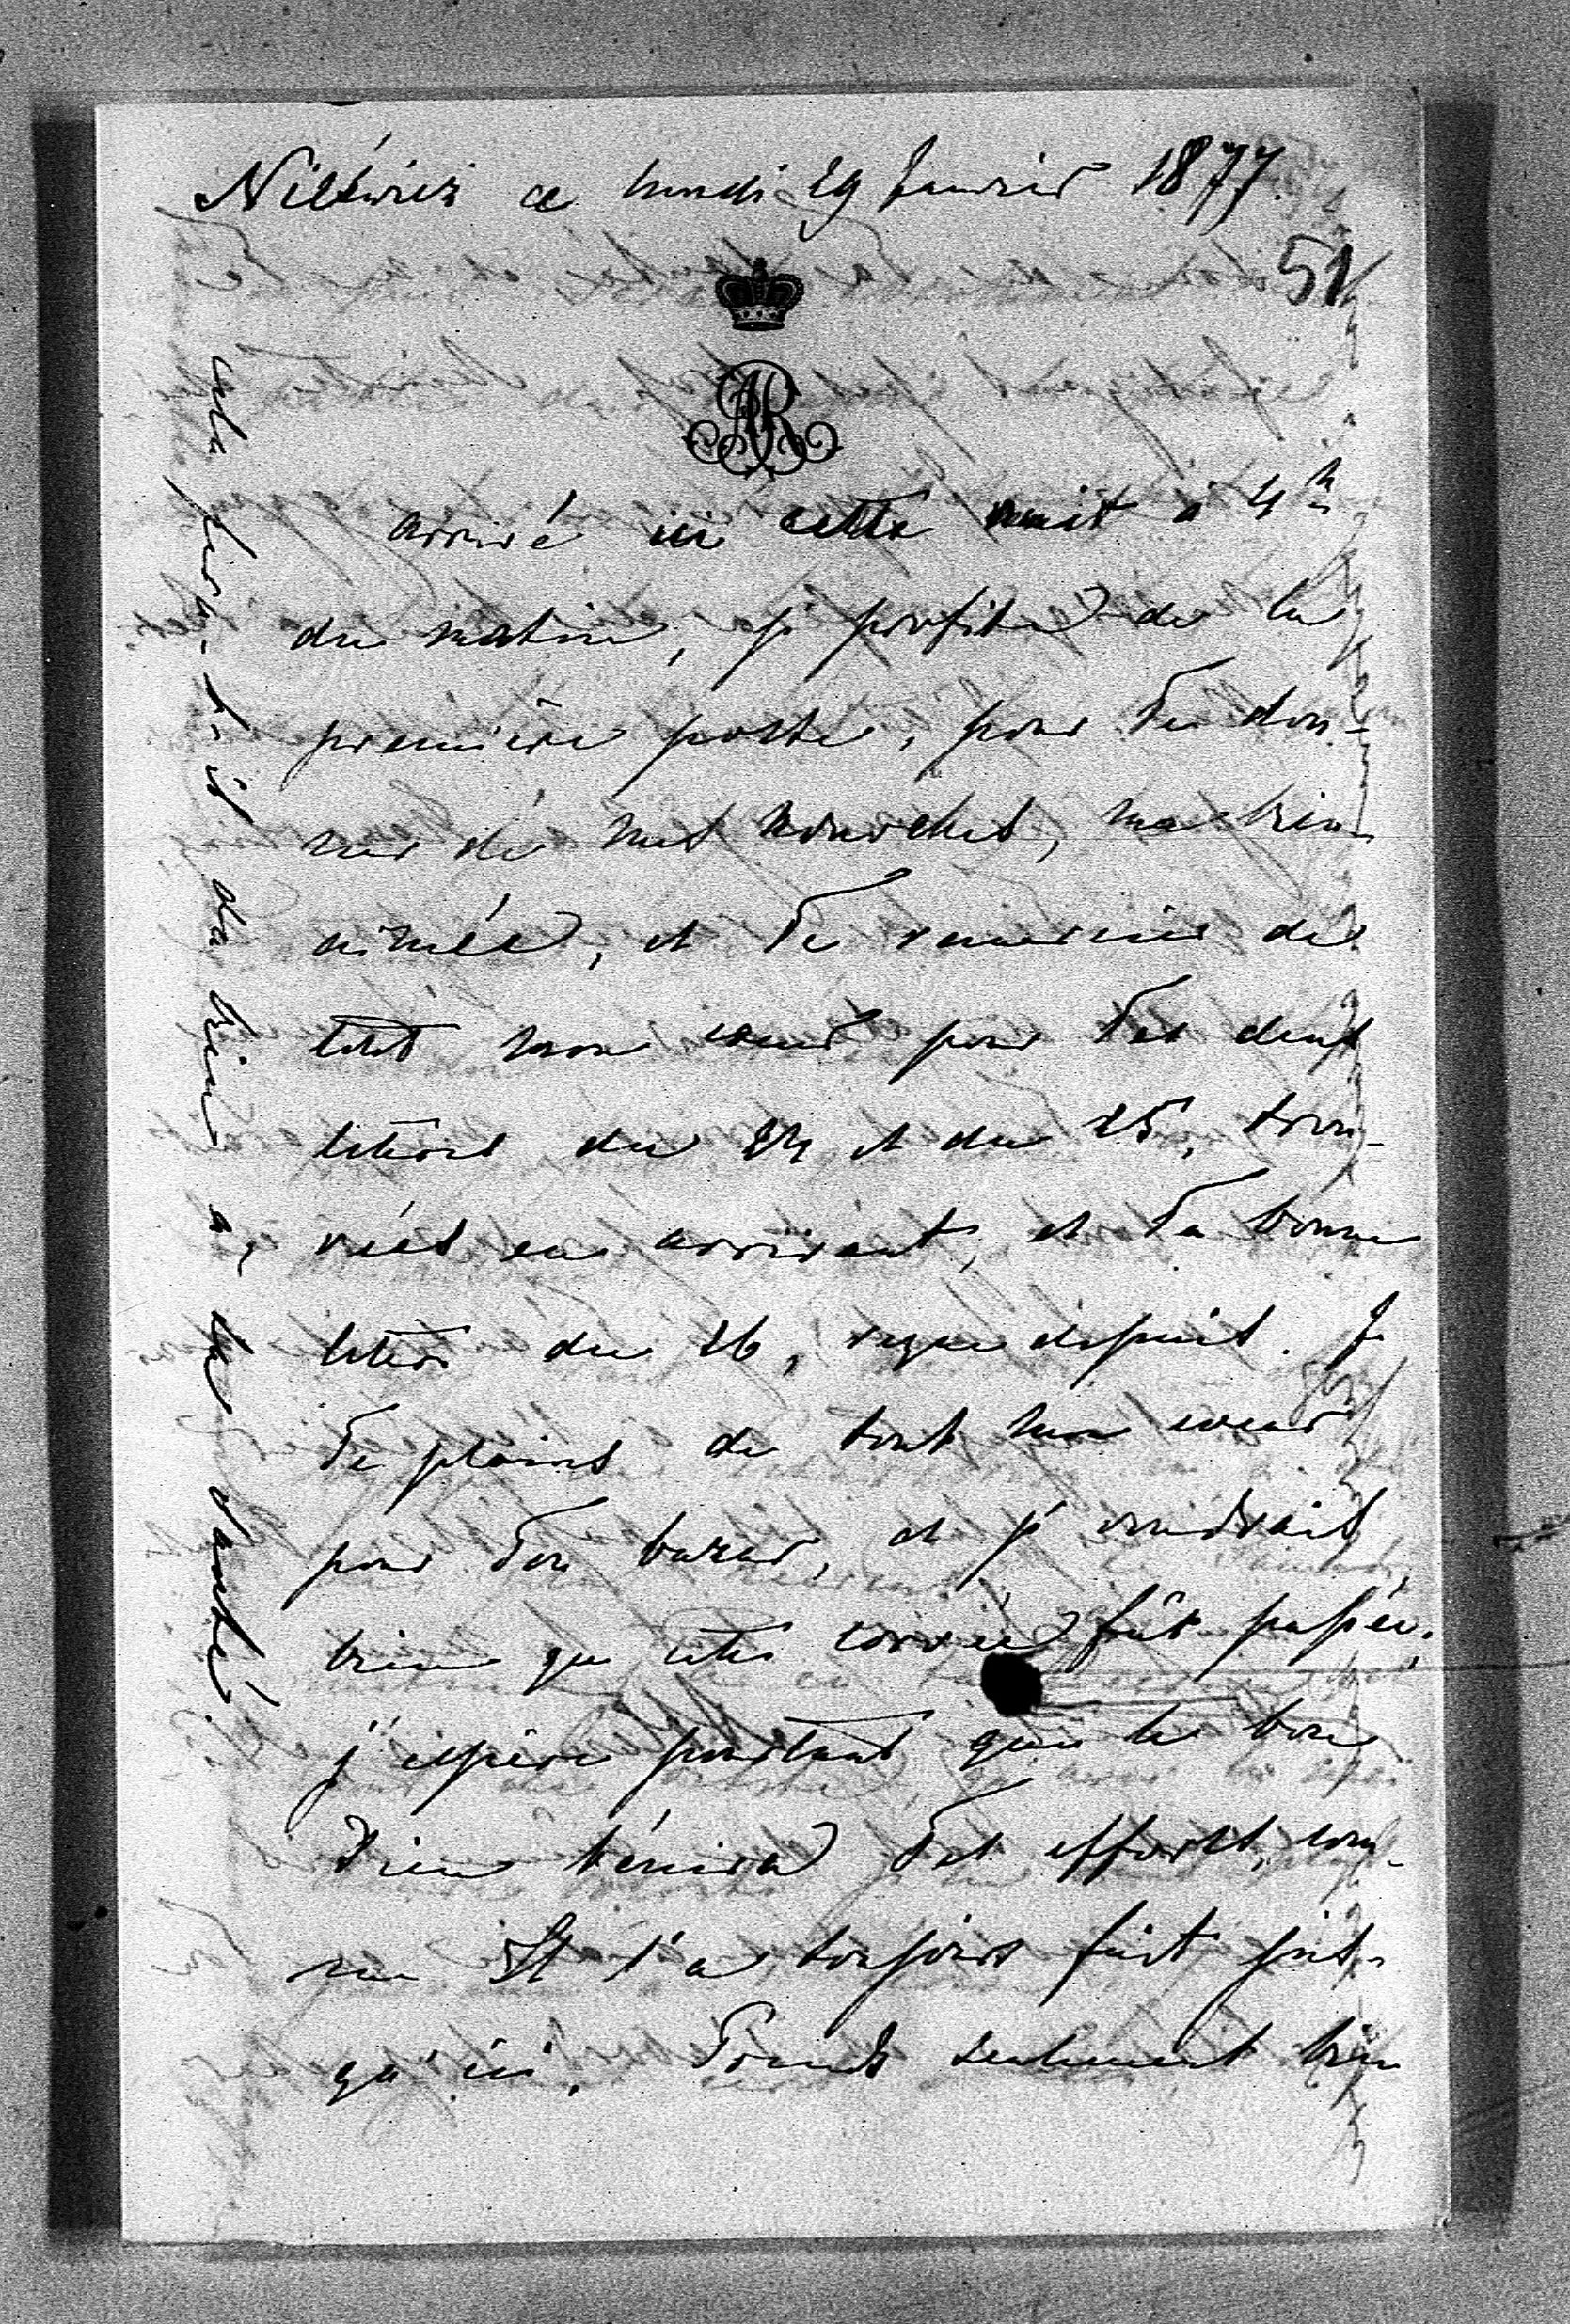 Niéświez ce lundi 29 Janvier 1877.
51
AR
arrivé ici cette nuit à 4 h
du matin, je profite de la
première poste, pour Te don-
ner de mes nouvelles, ma bien
aimée, et Te remercier de
tout mon coeur pour Tes deux
lettres du 24 et du 25, trou-
vées en arrivant, et Ta bonne
lettre du 26, reçue depuis. Je
Te plains de tout mon coeur
pour Ton bazar, et je voudrais
bien que cette corvée fût passée,
j'espère pourtant que le bon
Dieu bénira Tes efforts, com-
me Il l'a toujours fait jus-
qu'ici. Prends seulement bien
du bien à la santé.